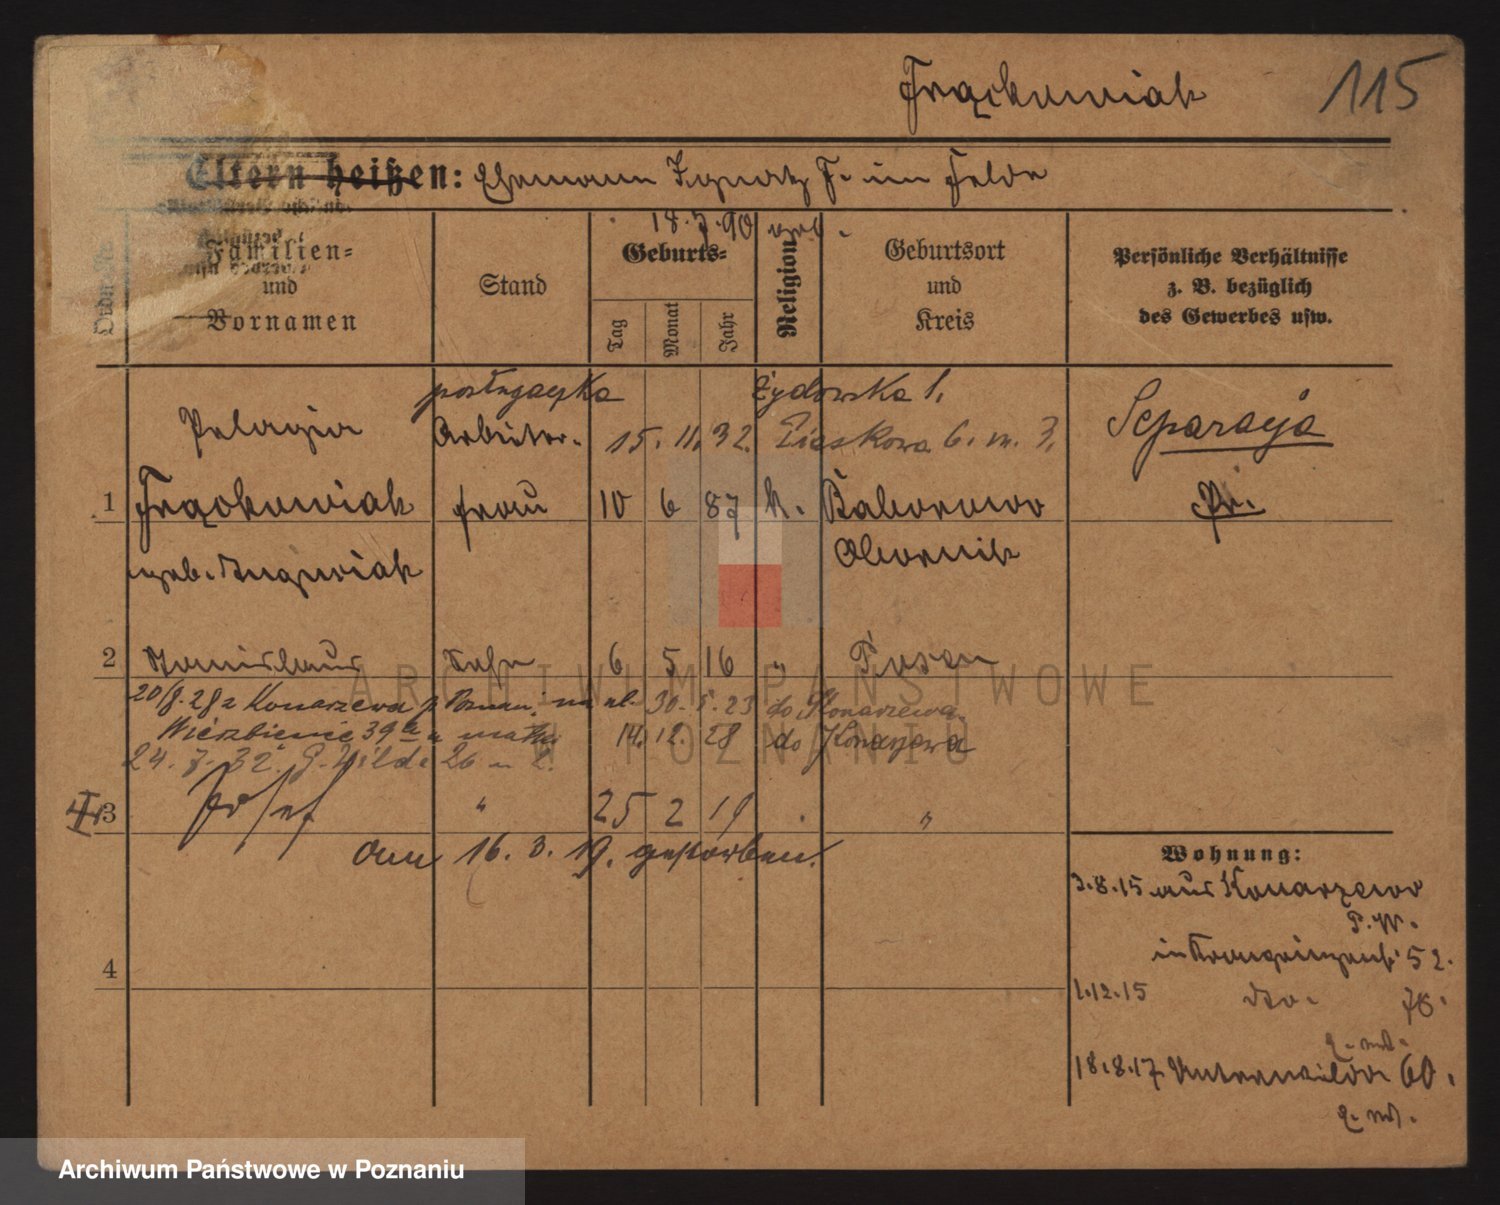 Frąckowiak 115
Eltern heißen: Ehemann Ignatz F. im Felde
18.7.90 geb.
Ordn.-Nr.
Familien=
und
Vornamen
Stand
Geburts=
Tag
Monat
Jahr
Religion
Geburtsort
und
Kreis
Persönliche Verhältnisse
z. B. bezüglich
des Gewerbes usw.
posługaczka Żydowska 1.
Pelagia Arbeiter- 15. 11. 32. Piaskowa 6. m. 3. Separacja
1 Frąckowiak frau 10 6 87 k. Baborowo Pr.
geb. Obornik
2 Stanislaus Sohn 6 5 16 " Posen
20/8. 28 z Konarzewa p. Poznań 30. 5. 23 do Konarzewa
Wierzbięcice 39a u matki 14. 12. 28 do Konarzewa
24. 7. 32. G. Wilda 26 m 2.
3 Josef " 25 2 19 "
am 16. 3. 19. gestorben.
4
Wohnung:
3.8.15 aus Konarzewo
P.W.
in Kronprinzenstr 52.
1.12.15 dto. 78.
18.8.17 Unterwilda 60.
ARCHIWUM PAŃSTWOWE
W POZNANIU
Archiwum Państwowe w Poznaniu